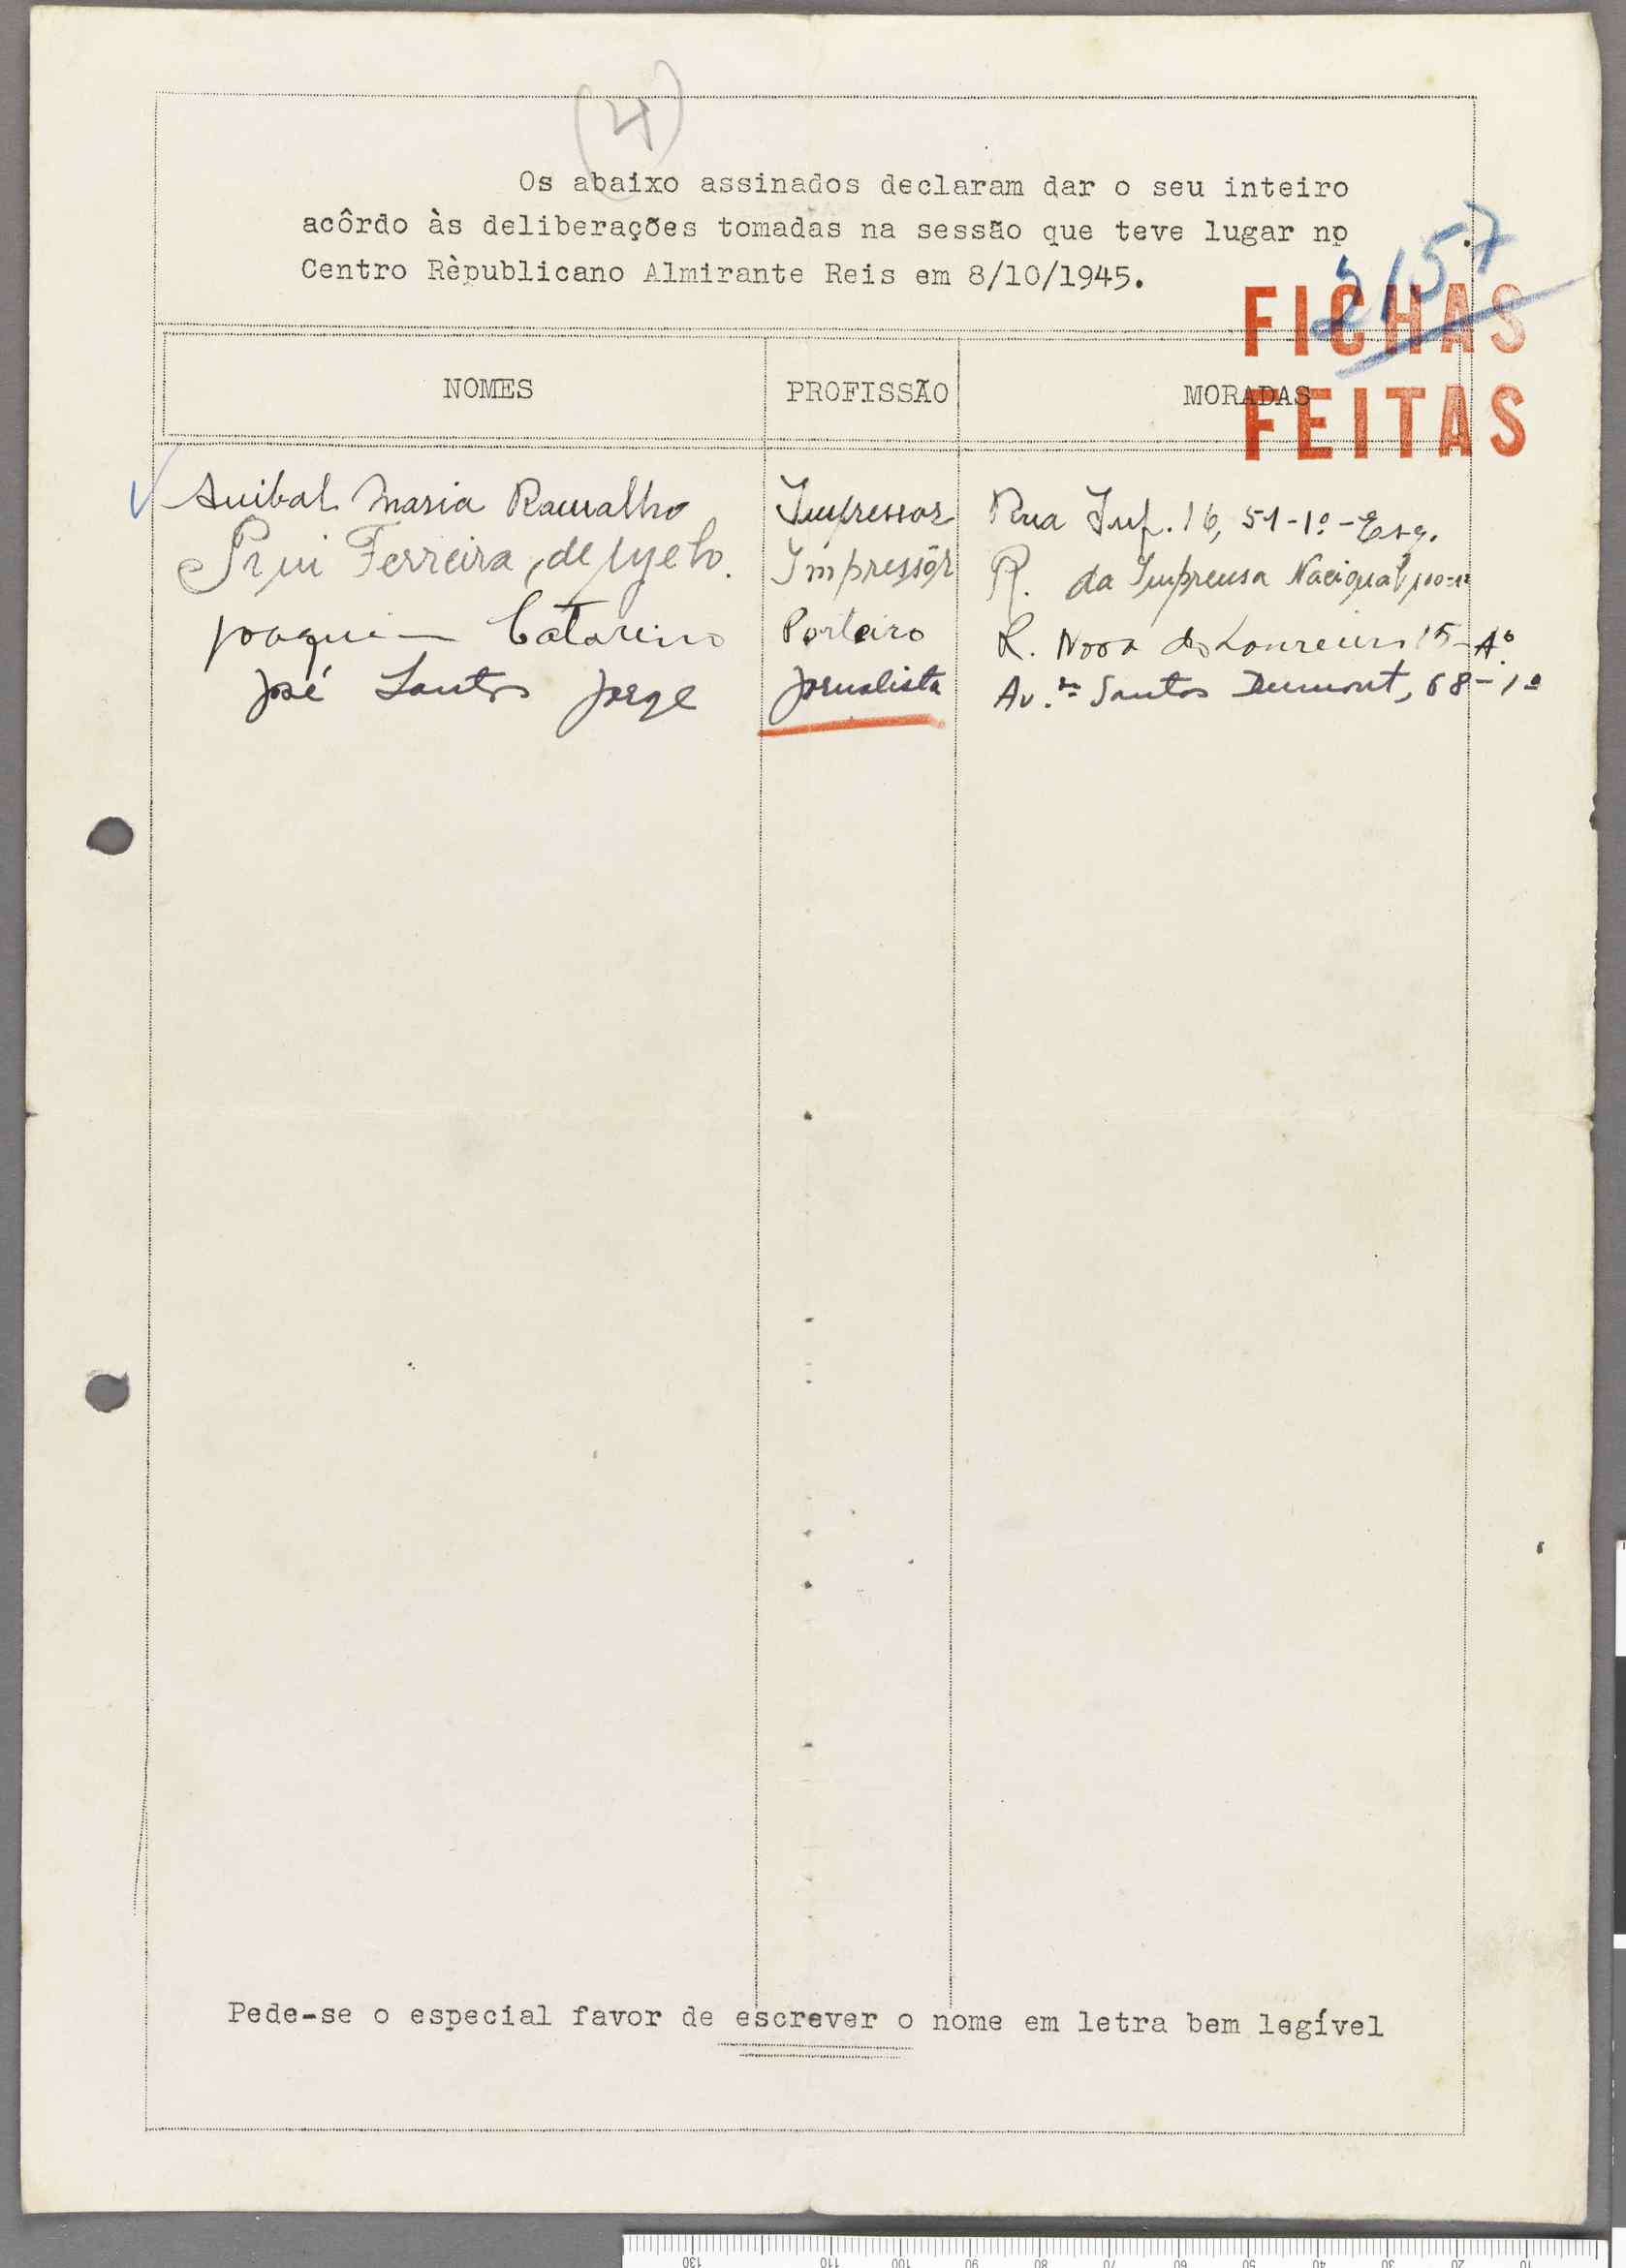 (4)
Os abaixo assinados declaram dar o seu inteiro
acôrdo às deliberações tomadas na sessão que teve lugar no
Centro Rèpublicano Almirante Reis em 8/10/1945.
2157
FICHAS
FEITAS
NOMES PROFISSÃO MORADAS
Anibal Maria Ramalho Impressor Rua Inf. 16, 51-1º-Esq.
Rui Ferreira de Melo. Impressôr R. da Imprensa Nacional
Joaquim Catarino Porteiro R. Nova do Loureiro 15-
José Santos Jorge Jornalista Av.ª Santos Dumont, 68-1º
Pede-se o especial favor de escrever o nome em letra bem legível
130 110 100 90 80 70 60 50 40 30 20 10